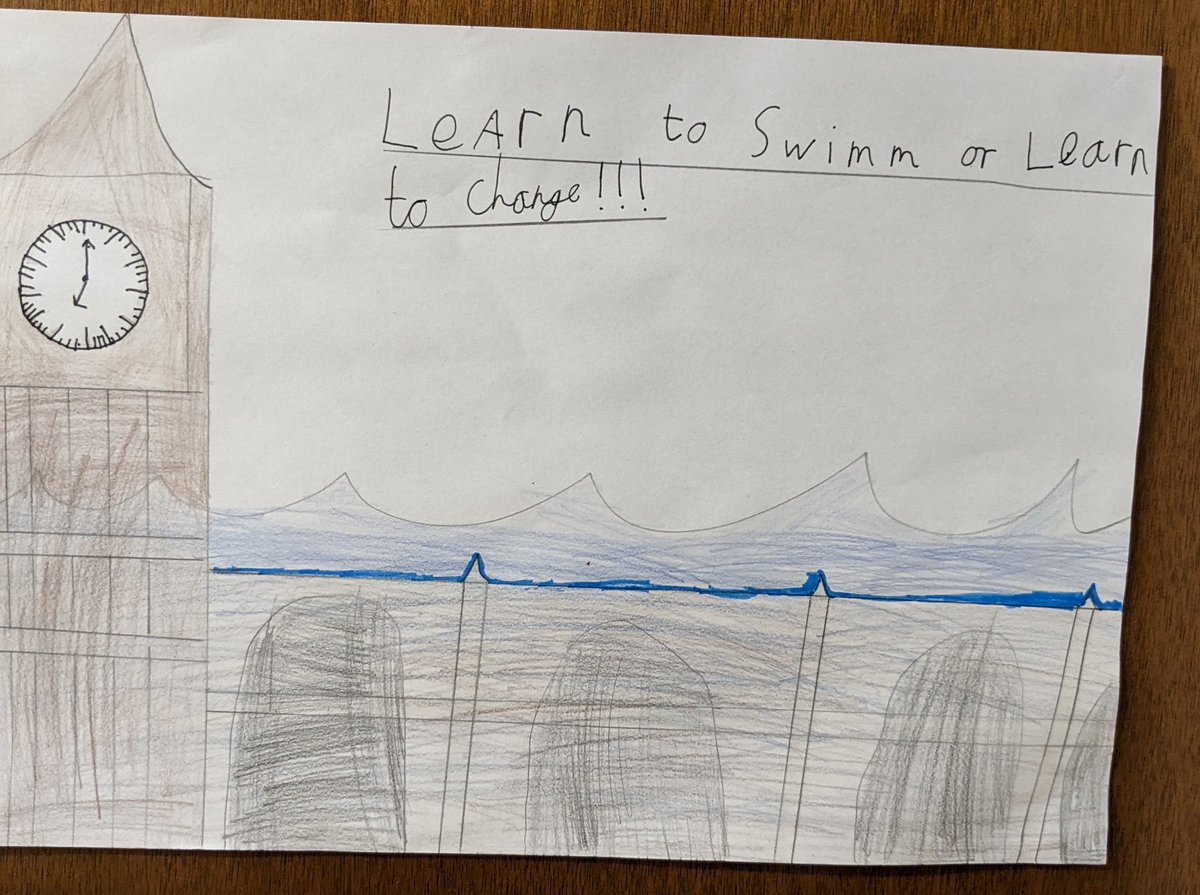 Learn to Swimm or Learn
to change!!!